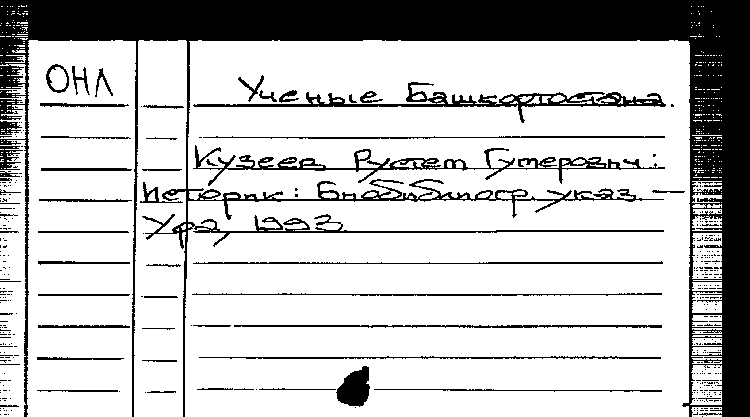 ОНЛ
Ученые Башкортостана.
Кузеев Рустем Гумерович:
историк: Биобиблиогр. указ. —
Уфа, 1993.